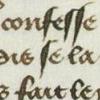 confesse
dis se la
s fait le